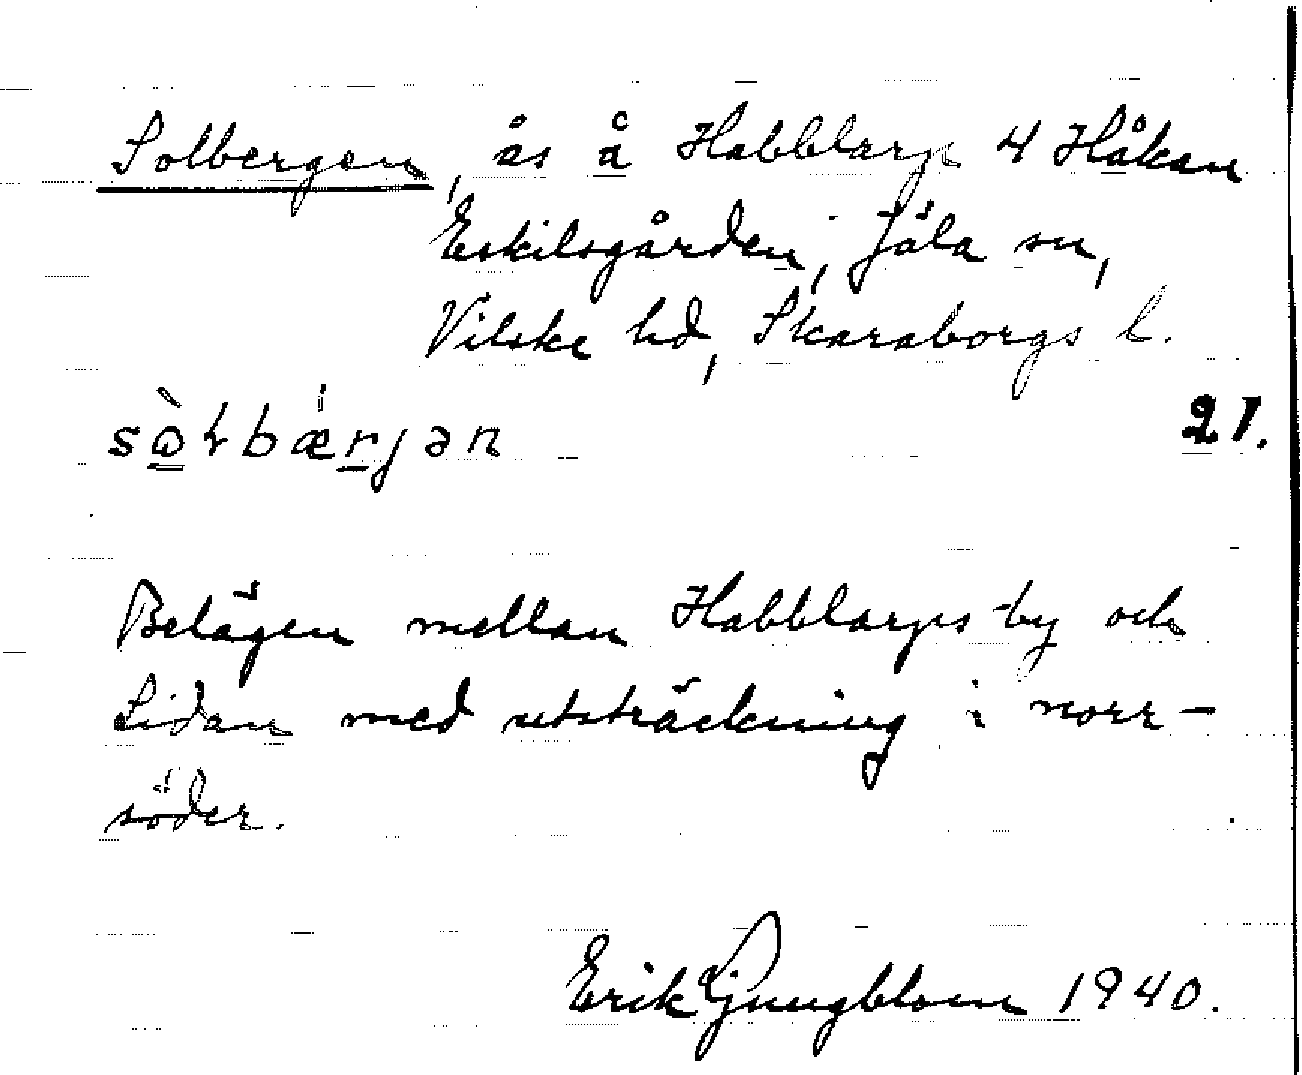 Solbergen, ås å Habblarp 4 Håkan
Eskilsgården, Jäla sn,
Vilske hd, Skaraborgs l.
sò̱ɫbǽṟjən 21.
Belägen mellan Habblarps by och
Lidan med utsträckning i norr-
söder.
Erik Ljungblom 1940.